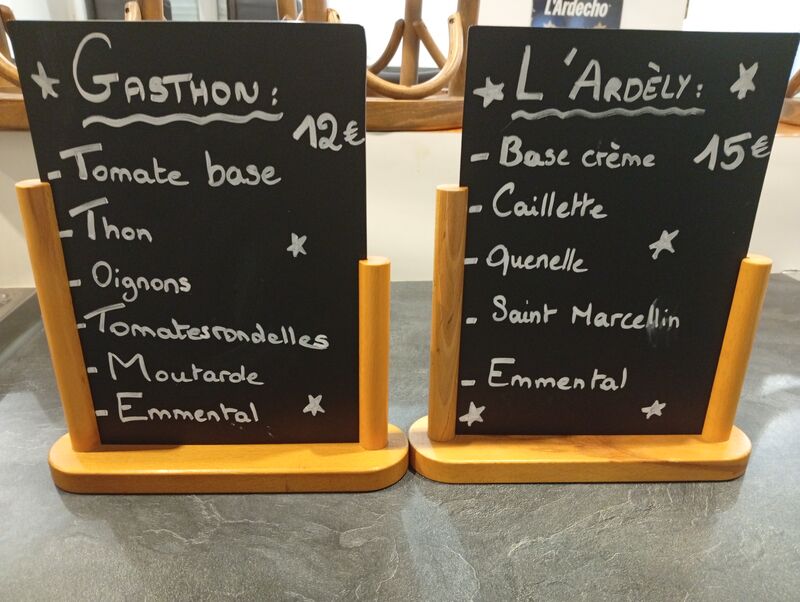 L'Ardecho
GASTHON :
12€
- Tomate base
- Thon
- Oignons
- Tomates rondelles
- Moutarde
- Emmental
L'ARDÈLY :
15€
- Base crème
- Caillette
- Quenelle
- Saint Marcellin
- Emmental